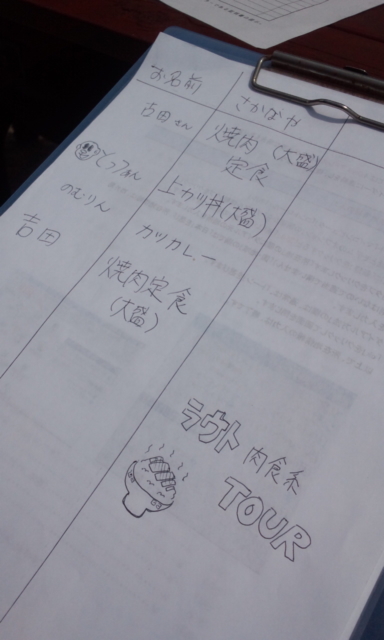 お名前 さかなや
吉田さん 焼肉(大盛)
定食
とっつぁん 上カツ丼(大盛)
のむりん カツカレー
吉田 焼肉定食
(大盛)
ラウト 肉食系
TOUR